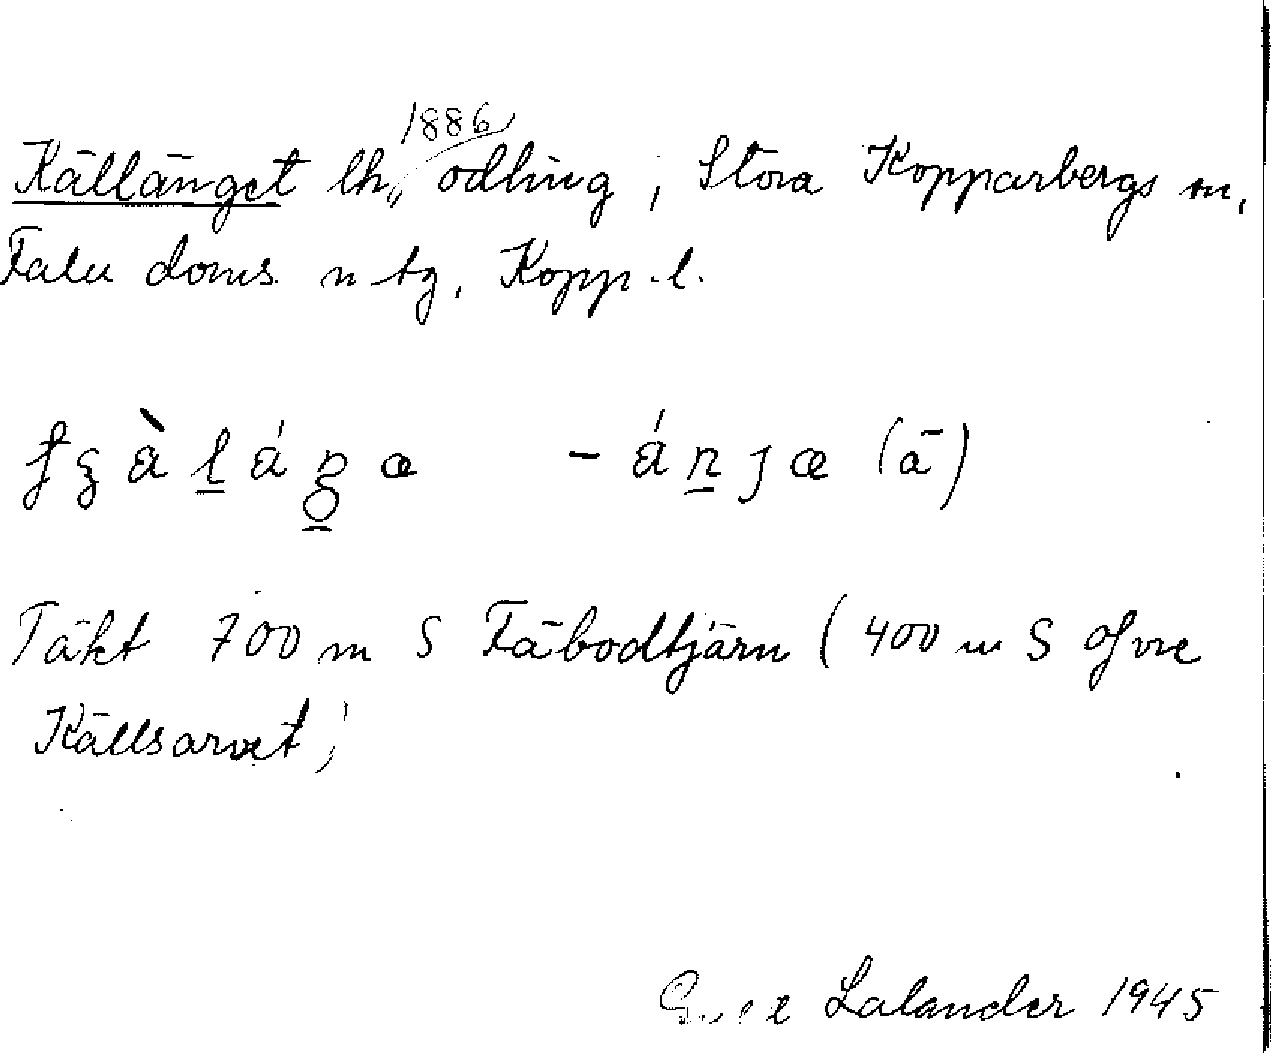 1886
Källänget lh, odling, Stora Kopparbergs sn,
Falu doms. n tg, Kopp. l.
Täkt 700 m S Fäbodtjärn (400 m S Ofvre
Källsarvet)
Lalander 1945